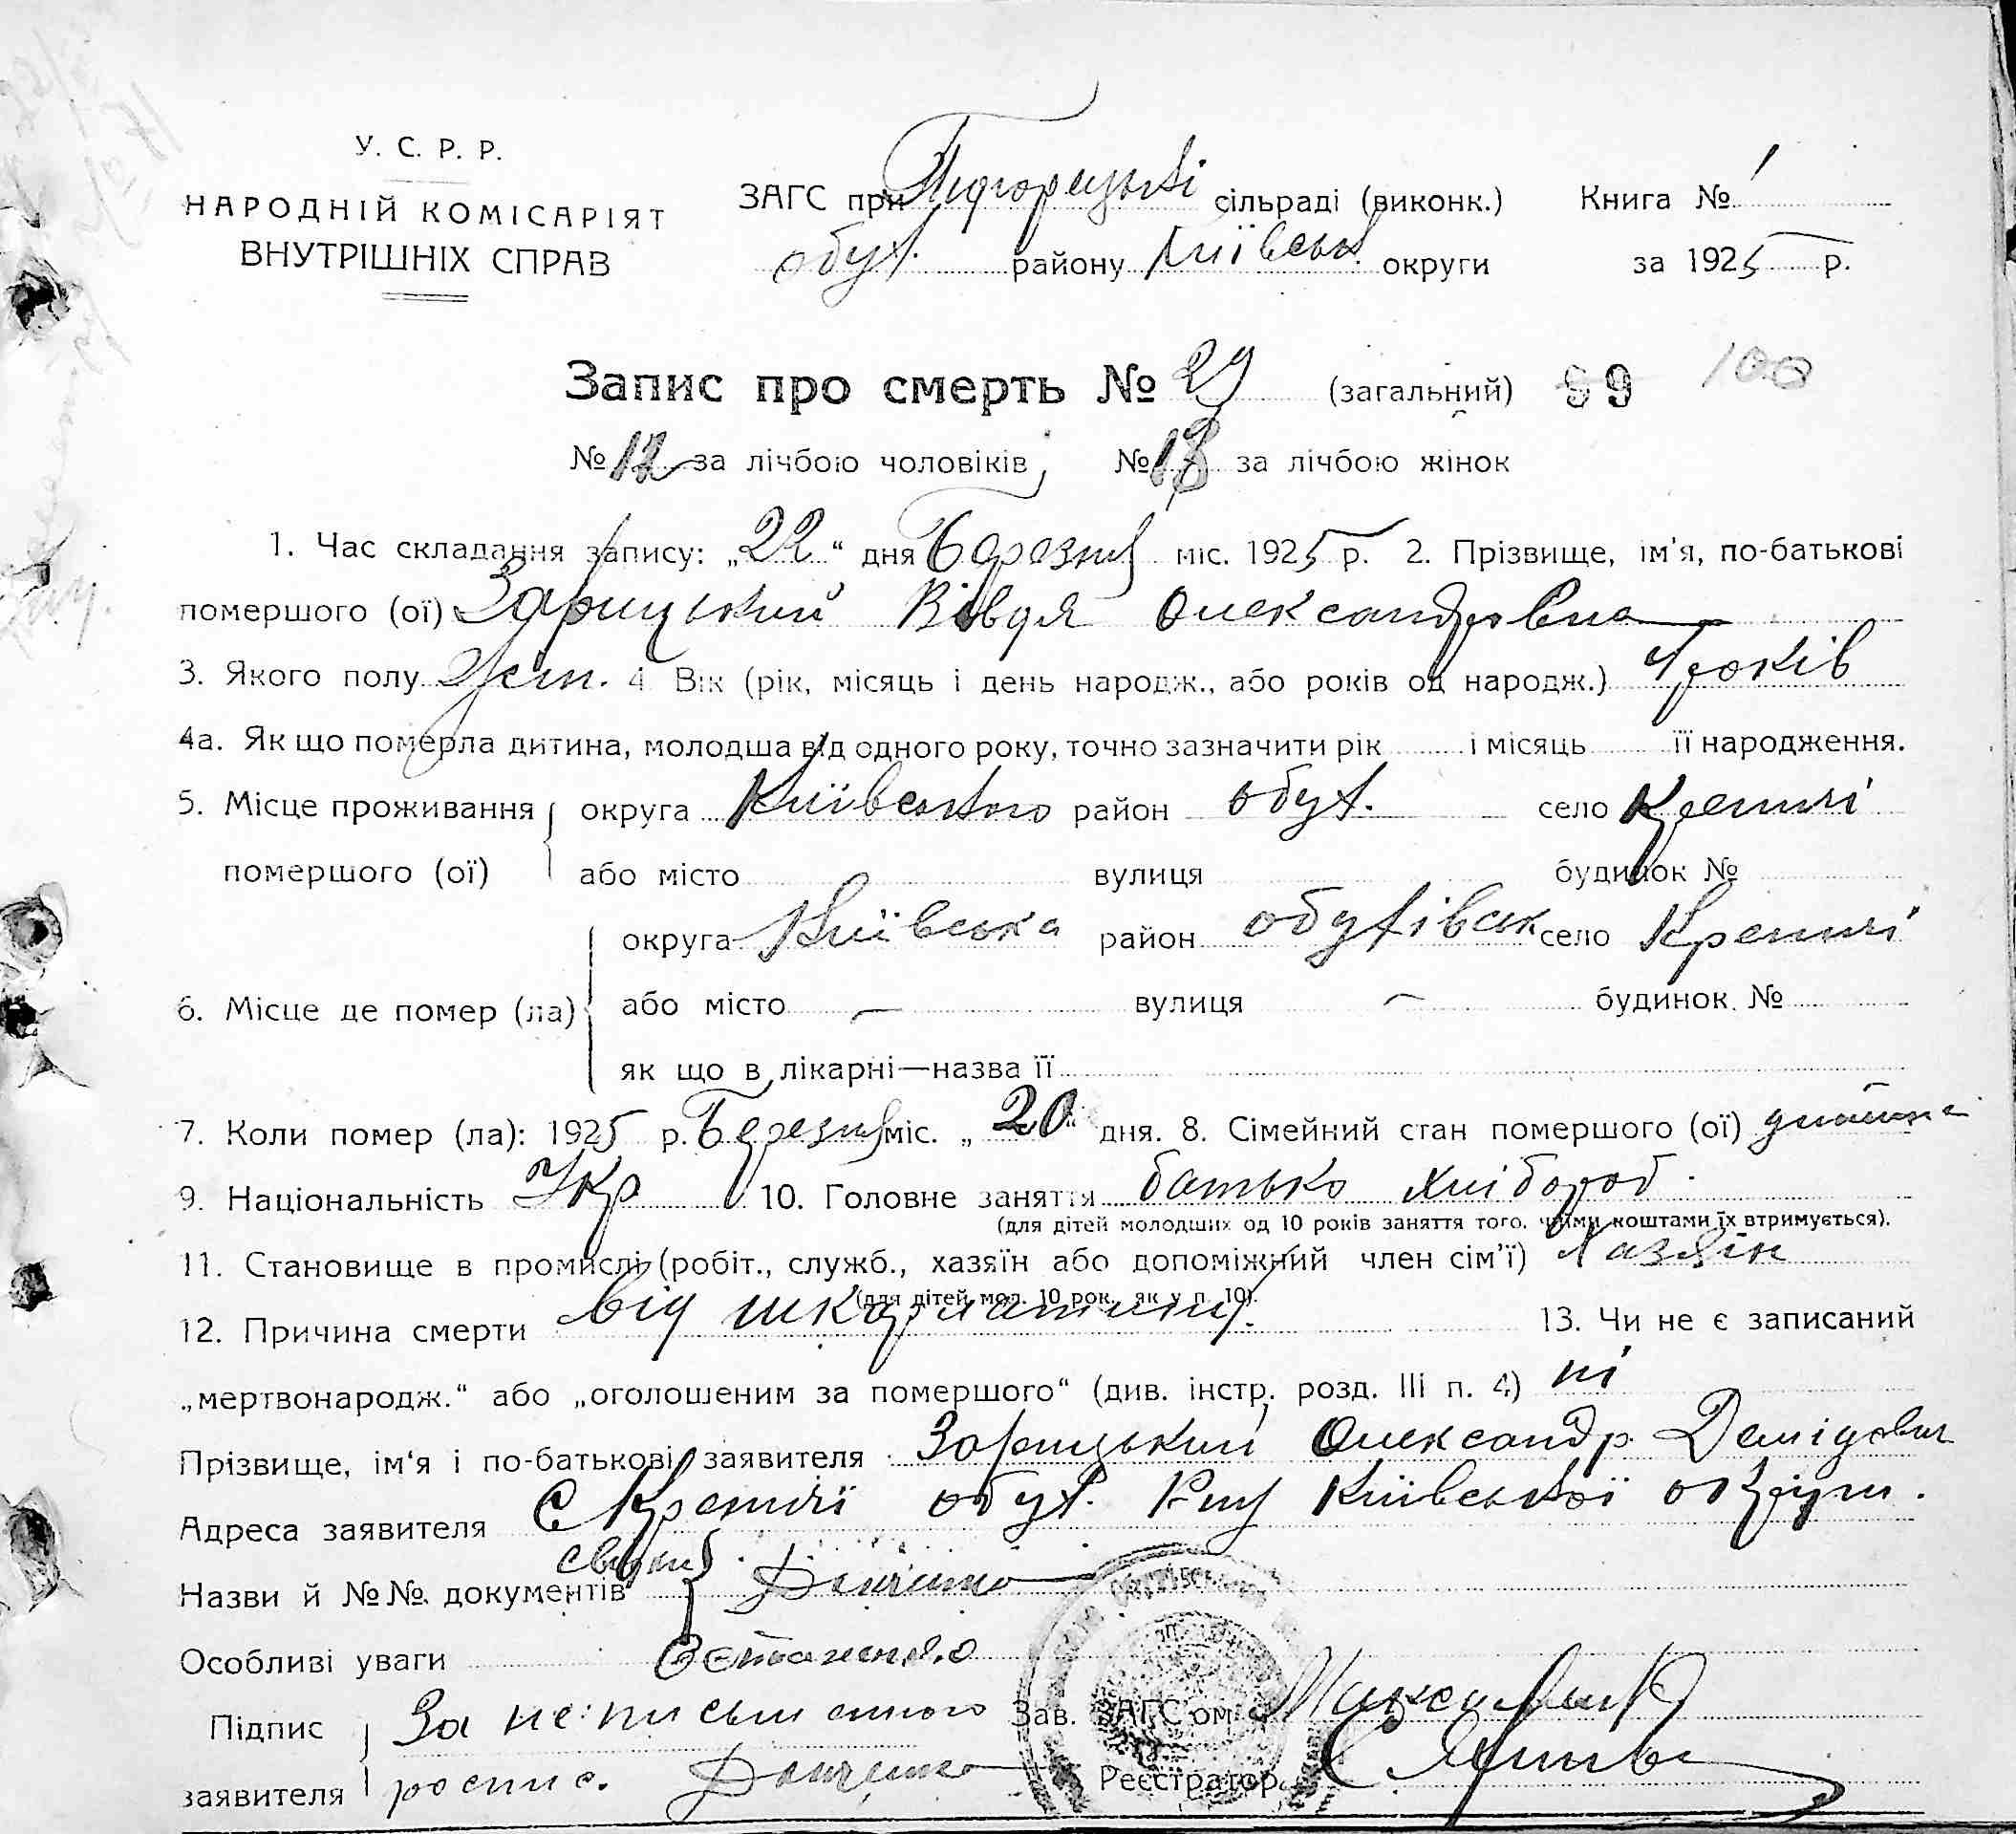 У. С. Р. Р.
НАРОДНІЙ КОМІСАРІЯТ
ВНУТРІШНІХ СПРАВ
ЗАГС при Підгорецькі сільраді (виконк.) Книга № 1
обух. району Київськ округи за 1925 р.
Запис про смерть № 29 (загальний) 99 100
№ 12 за лічбою чоловіків, № за лічбою жінок
1. Час складання запису: „22“ дня Березня міс. 1925 р. 2. Прізвище, ім'я, по-батькові
помершого (ої) Зарицький Вівдя Олександровна
3. Якого полу жін. 4 Вік (рік, місяць і день народж., або років од народж.) 4 років
4а. Як що померла дитина, молодша від одного року, точно зазначити рік і місяць її народження.
5. Місце проживання округа Київського район обух. село Кремчі
помершого (ої) або місто вулиця будинок №
округа Київська район обухівськ село Кремчі
6. Місце де помер (ла) або місто — вулиця — будинок №
як що в лікарні—назва її
7. Коли помер (ла): 1925 р. Березня міс. „20“ дня. 8. Сімейний стан помершого (ої) дитина
9. Національність Укр 10. Головне заняття батько хлібороб.
(для дітей молодших од 10 років заняття того, чиїми коштами їх втримується).
11. Становище в промислі (робіт., служб., хазяїн або допоміжний член сім'ї) Хазяїн
(для дітей мол. 10 рок. як у п. 10).
12. Причина смерти від шкарлатини. 13. Чи не є записаний
„мертвонародж.“ або „оголошеним за помершого“ (див. інстр. розд. III п. 4) ні
Прізвище, ім'я і по-батькові заявителя Зарицький Олександр Демідович
Адреса заявителя с Кремчі обух. Р-ну Київської округи.
свідки
Назви й №№ документів Донченко
Особливі уваги Остапенко
Підпис За неписьменного Зав. ЗАГС'ом
заявителя роспис. Донченко Реєстратор